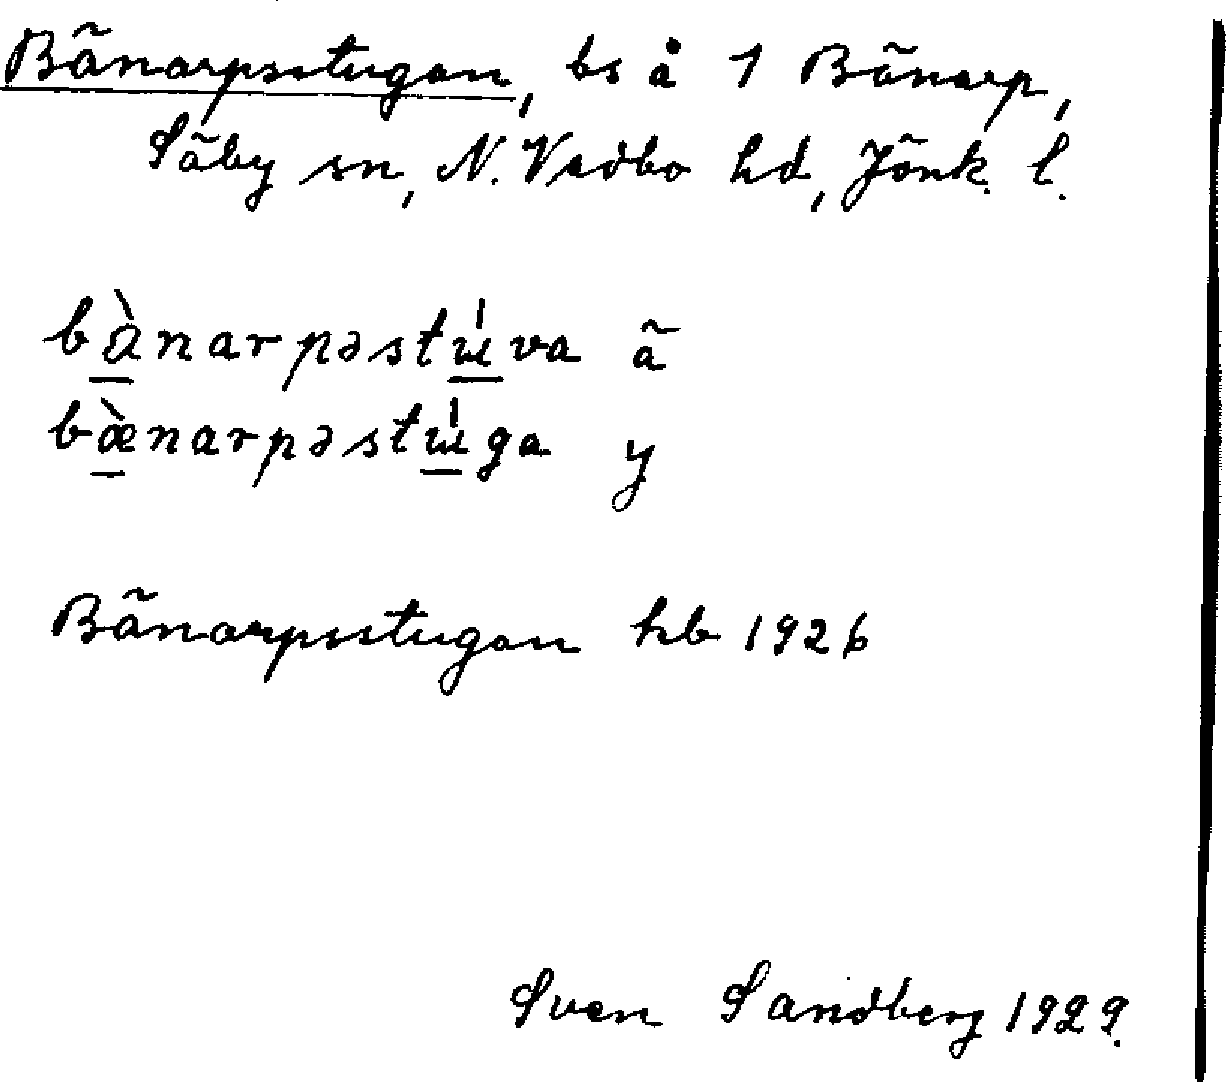 Bänarpsstugan, bs å 1 Bänarp,
Säby sn, N. Vedbo hd, Jönk. l.
bànarpəstɯ́va ä
bæ̀narpəstɯ́ga y
Bänarpsstugan hb 1926
Sven Sandberg 1929.